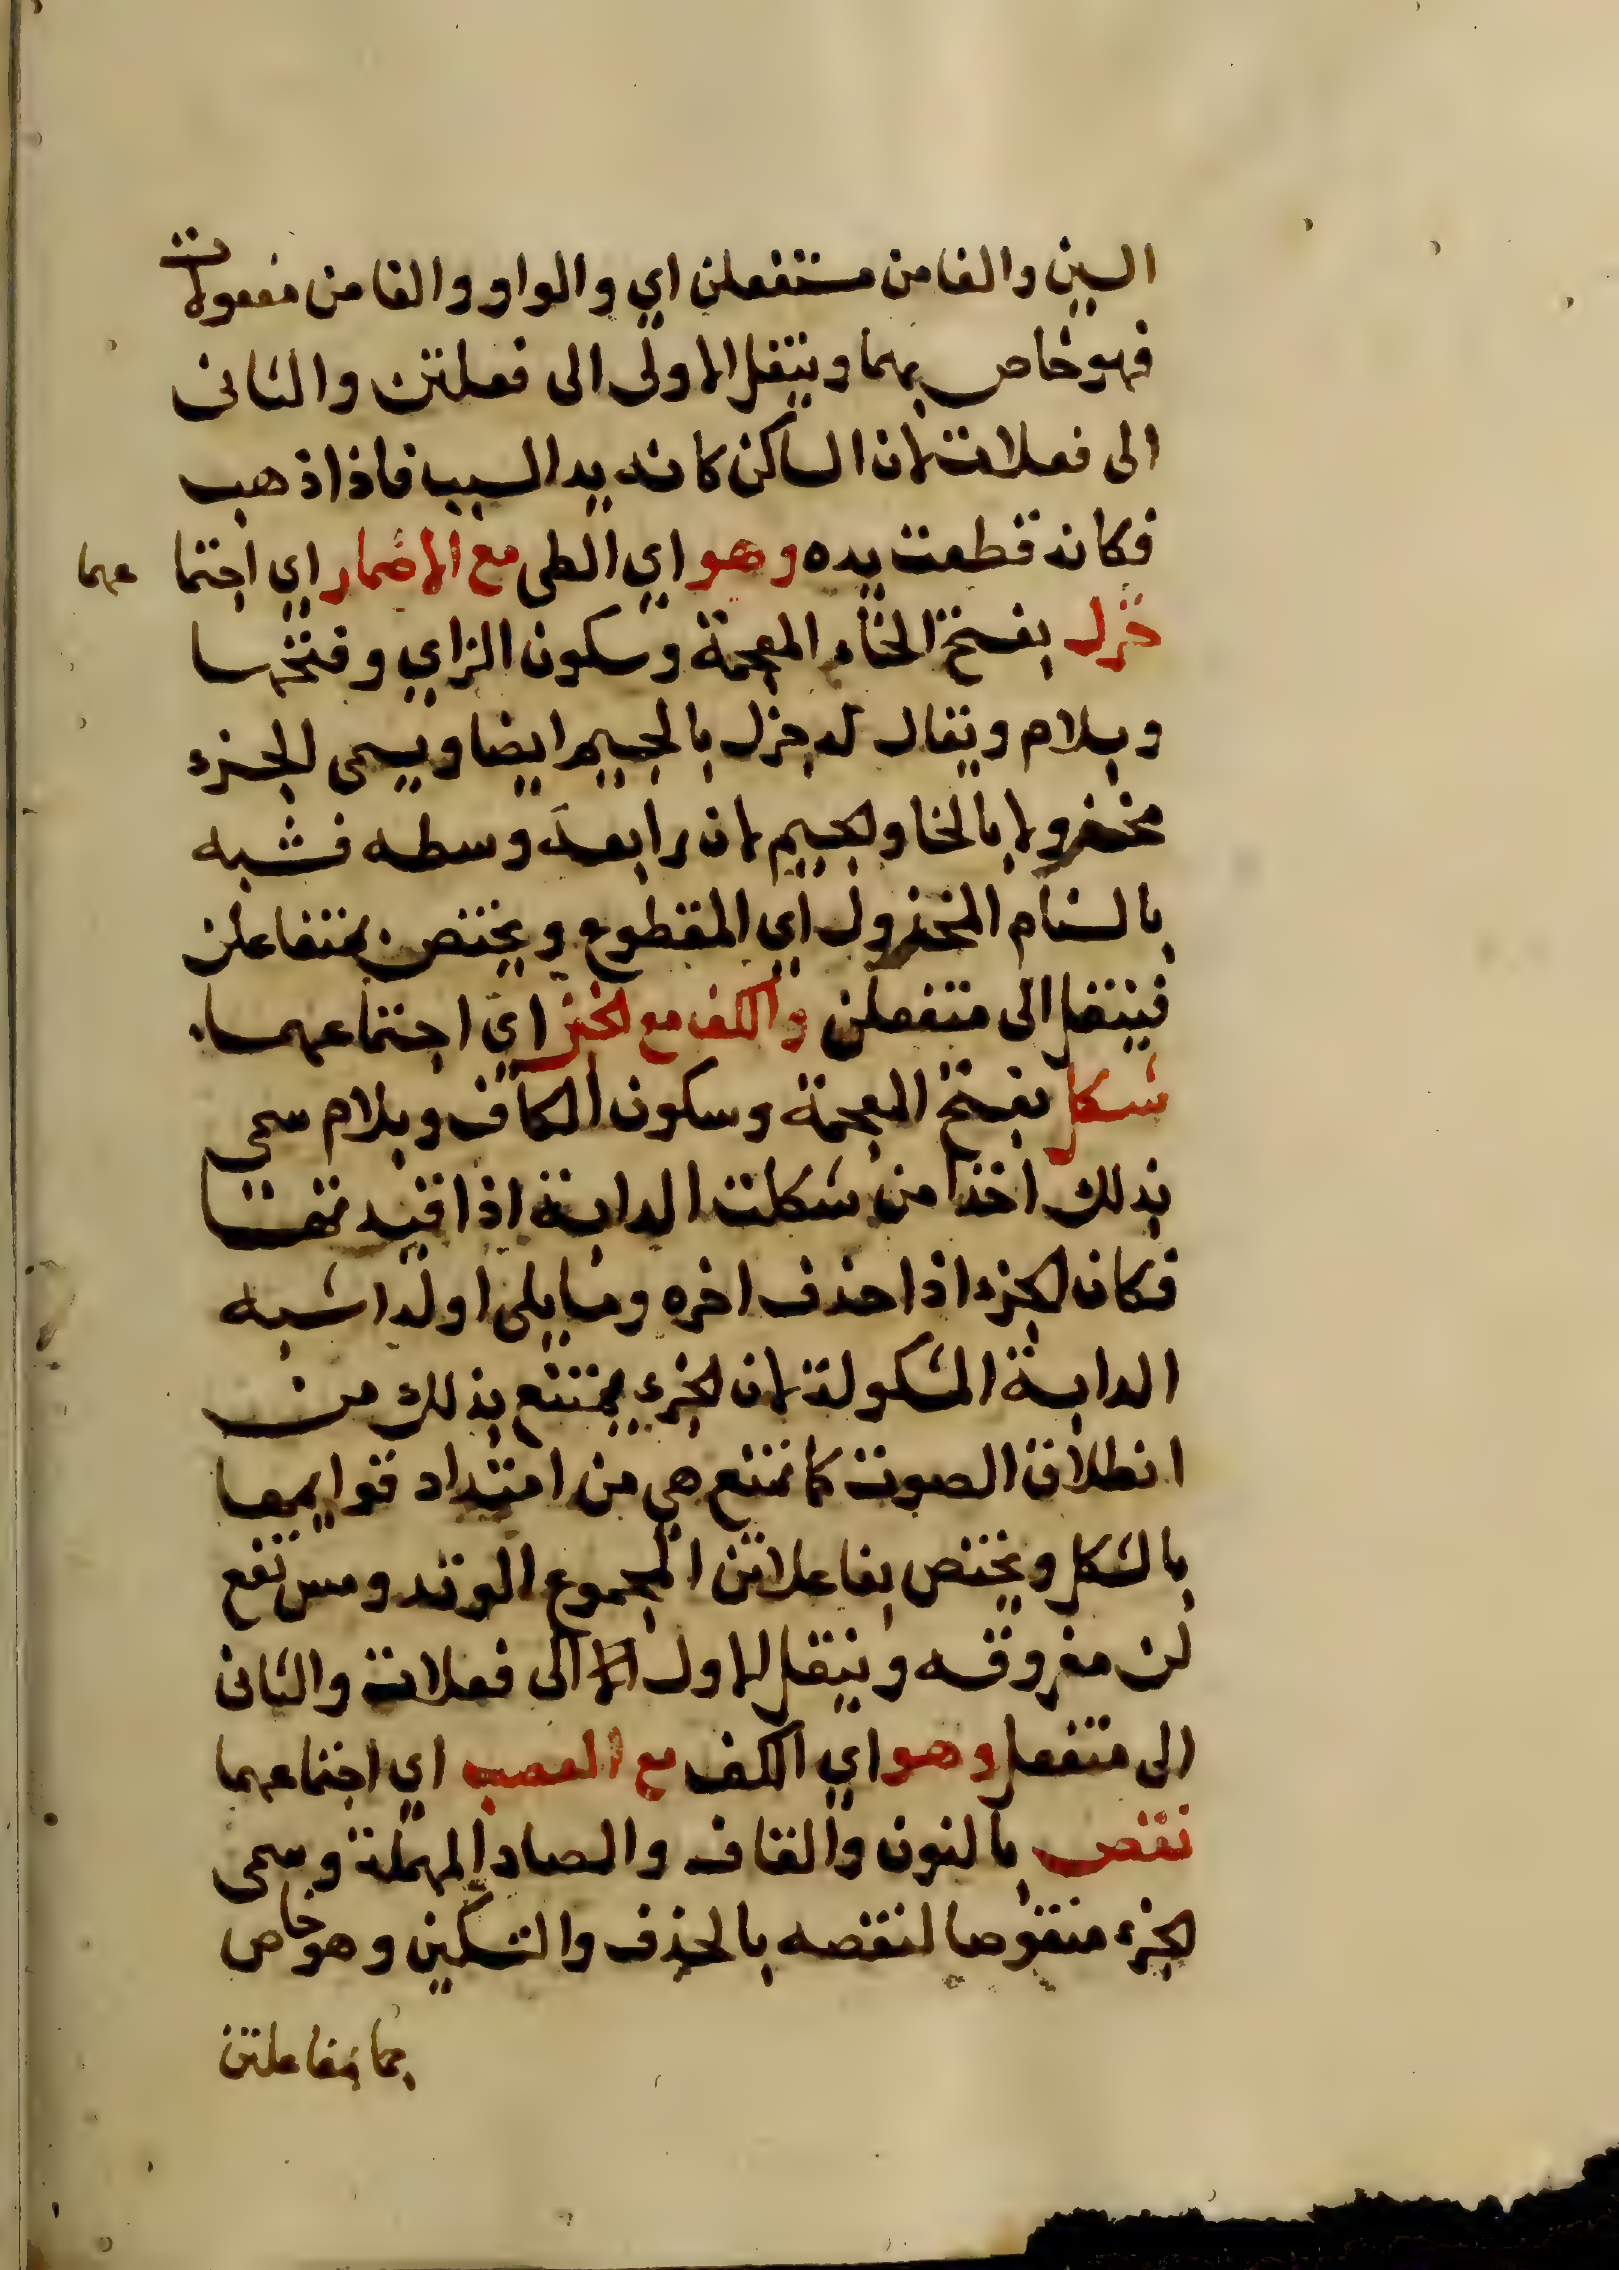 السين والفا من مستفعلن اي والواو والفا من مفعولات
فهو خاص بهما وينتقل الاولى الى فعلتن والثانى
الى فعلات لان الساكن كانه يد السبب فاذا ذهب
فكانه قطعت يده وهو اي الطى مع الاضمار اي اجتما عهما
خزل بفتح الخاء المعجمة وسكون الزاي وفتحها
وبلام ويقال له جزل بالجيم ايضا ويسمى الجزء
مخزولا بالخا والجيم لان رابعه وسطه فشبه
بالسنام المخزول اي المقطوع ويختص بمتفاعلن
فينتقل الى متفعلن والكف مع الخبن اي اجتماعهما
شكل بفتح المعجمة وسكون الكاف وبلام سمى
بذلك اخذا من شكلت الدابة اذا قيدتها
فكان الجزء اذا حذف اخره وما يلى اوله اشبه
الدابة المشكولة لان الجزء يمتنع بذلك من
انطلاق الصوت كما تمتنع هي من امتداد قوايمها
بالشكل ويختص بفاعلاتن المجموع الوتد ومس تفع
لن مفروقه وينتقل الاول الى فعلات والثانى
الى متفعل وهو اي الكف مع العصب اي اجتماعهما
نقص بالنون والقاف والصاد المهملة وسمى
الجزء منقوصا لنقصه بالحذف والتسكين وهو خاص
بمفاعلتن